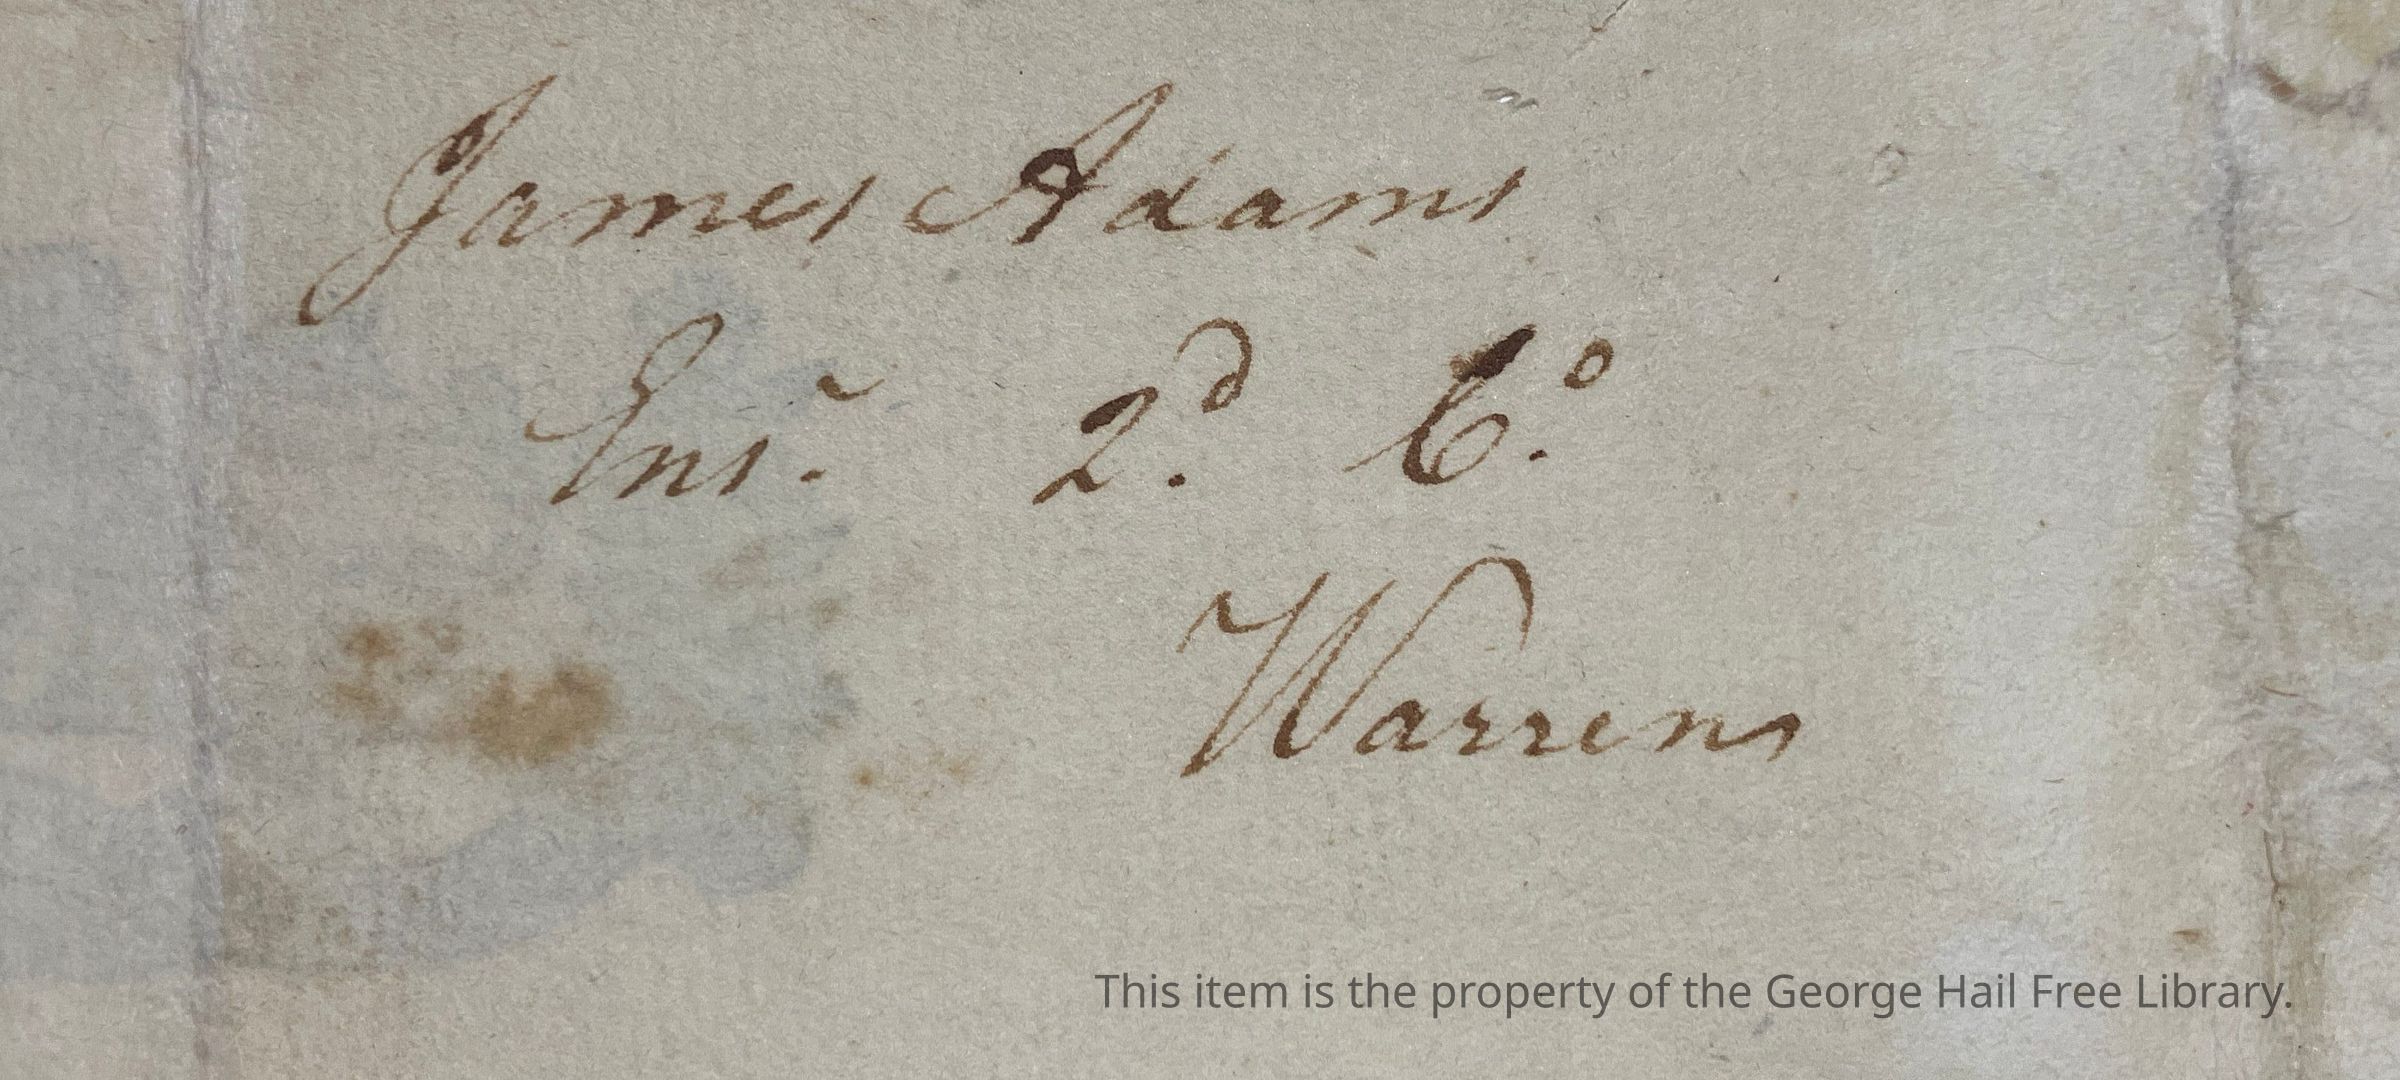 James Adams
Ens.r 2.d C.o
Warren
This item is the property of the George Hail Free Library.